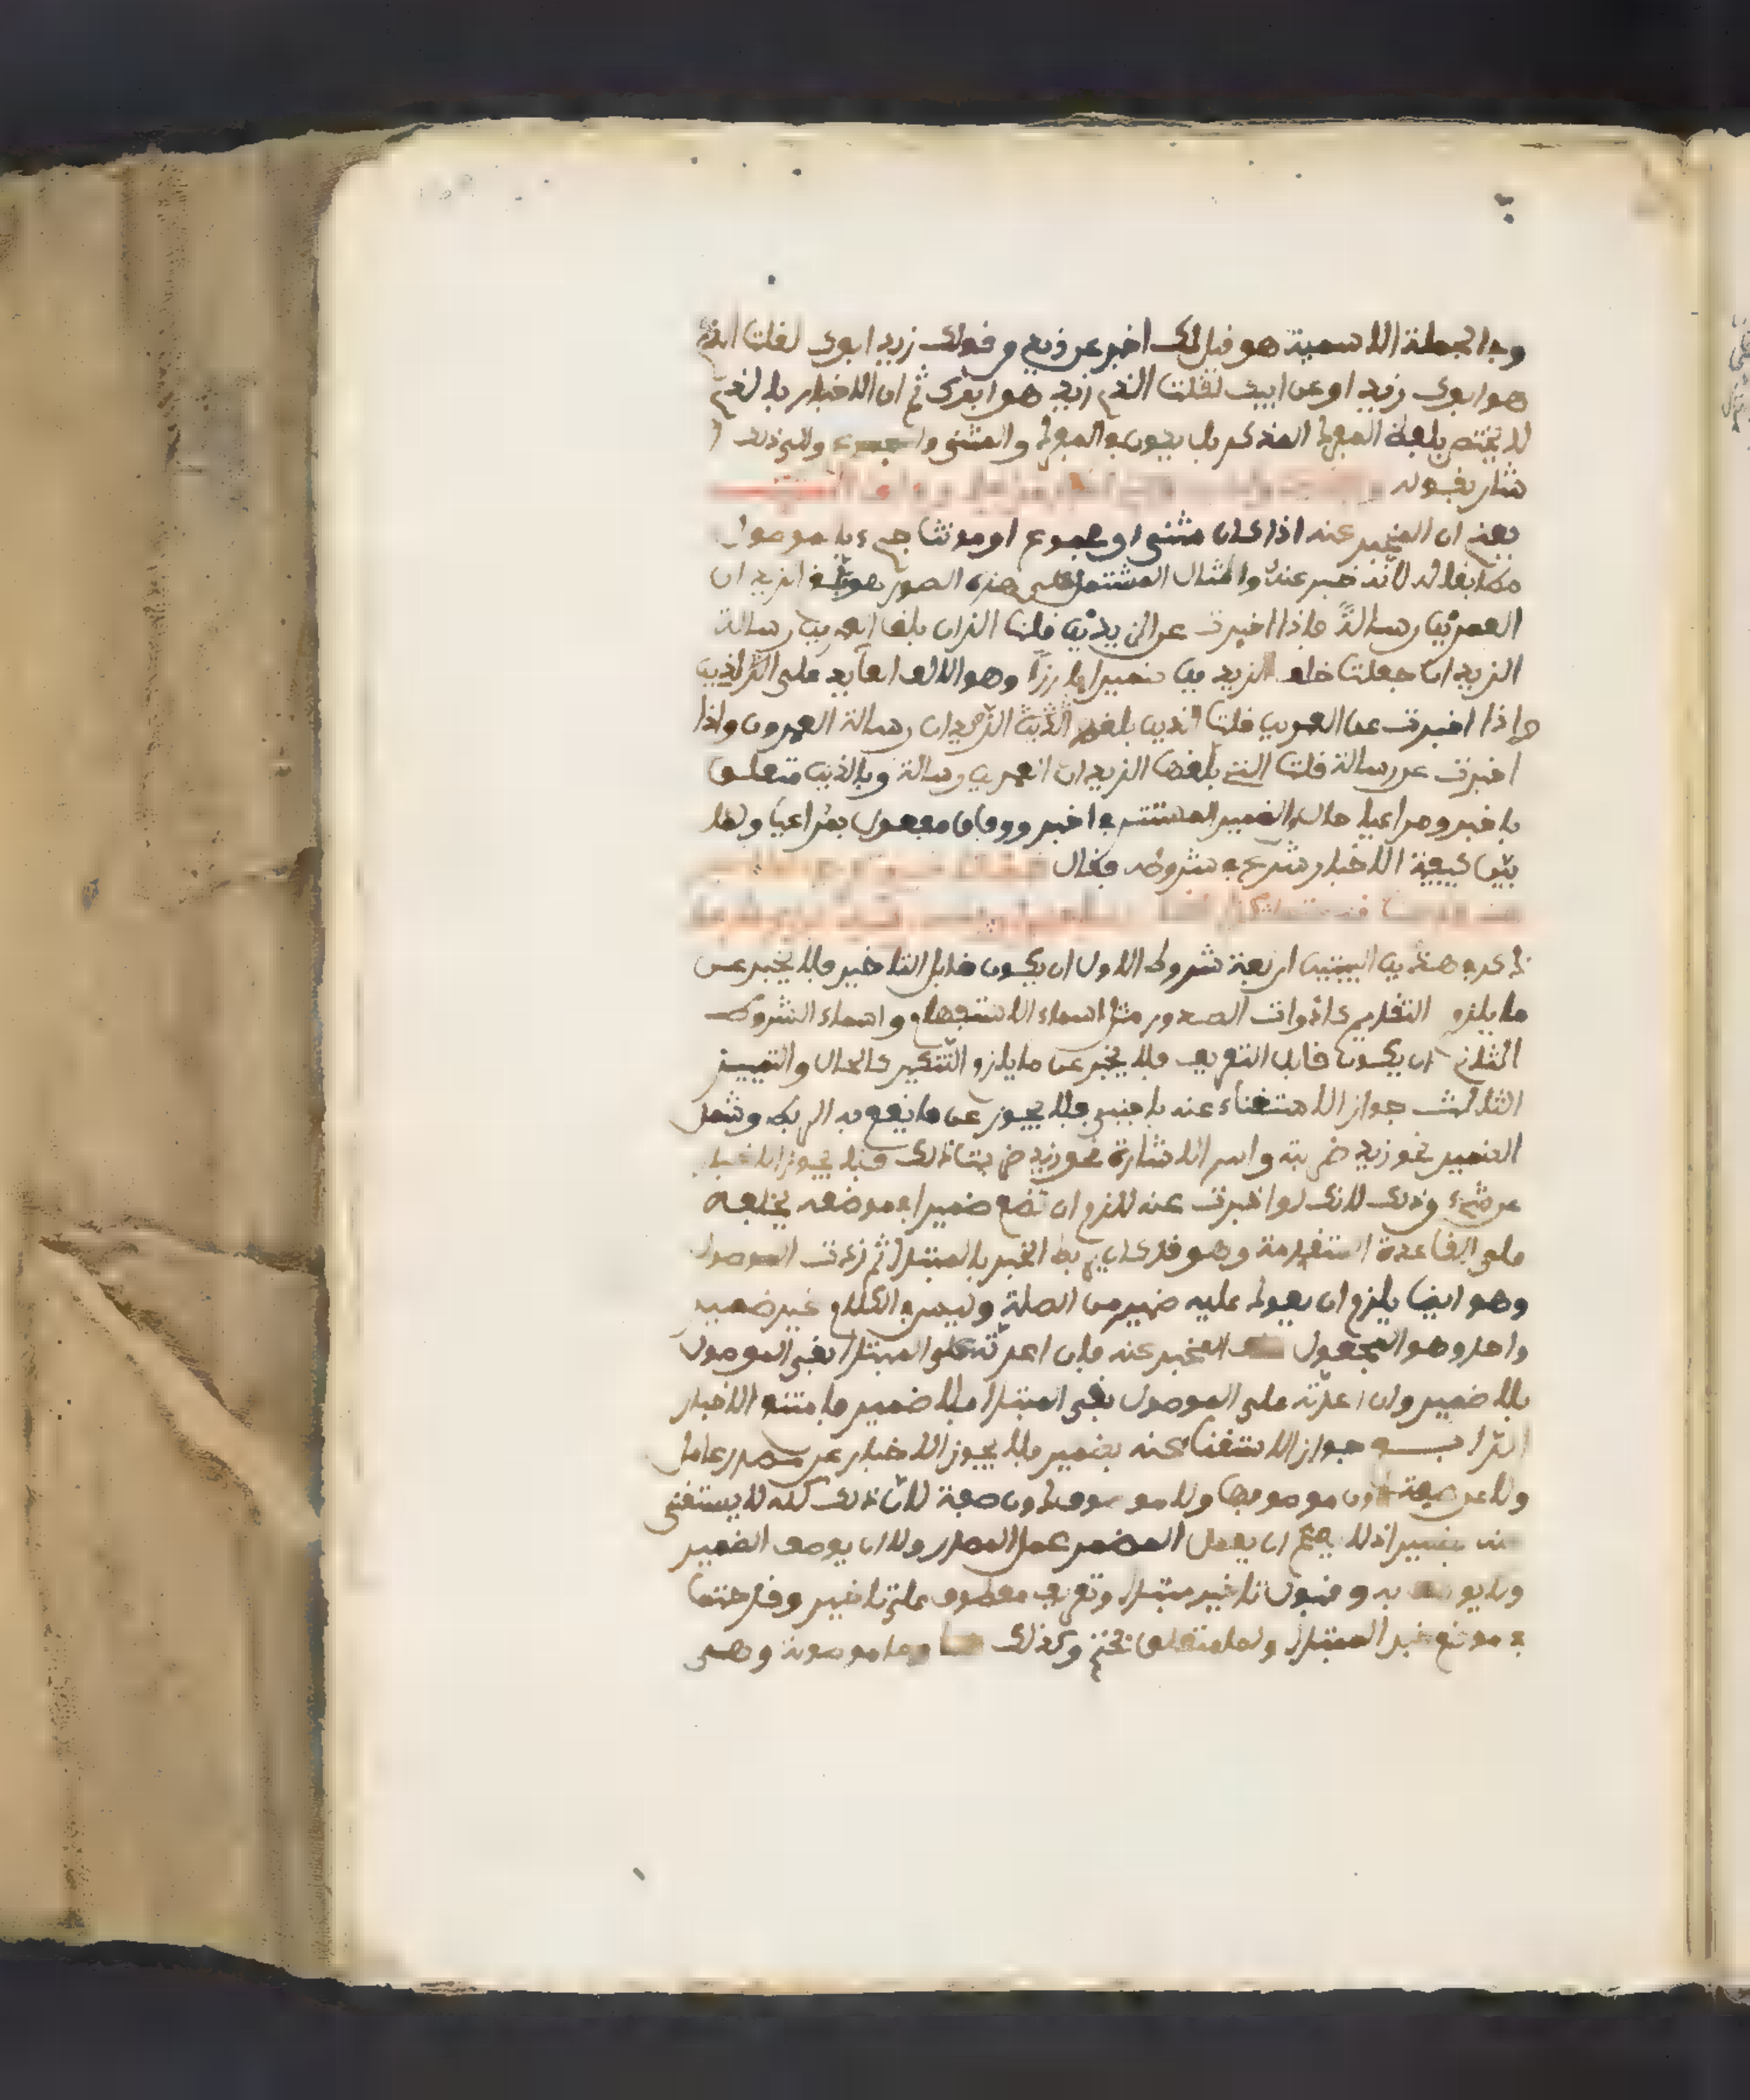 وبالجملة الاسمية هو قيل لك اخبر عن زيد من قولك زيد ابوك لقلت الذي
هو ابوك زيد او عن ابيك لقلت الذي زيد هو ابوك ثم ان الاخبار بالذي
لا يختص بلفظ المفرد المذكر بل يكون في المفرد والمثنى والى ذلك ا
شار بقوله
يعني ان المخبر عنه اذا كان مثنى او مجموع او مونثا جيء بالموصول
مطابقا له لانه خبر عنه والمثال المشتمل على هذه الصور هو بلغ الزيدان
العمرين رسالة فاذا اخبرت عن الزيدين قلت اللذان بلغا العمرين رسالة
الزيدان جعلت خلف الزيدين ضميرا بارزا وهو الالف العايد على اللذين
واذا اخبرت عن العمرين قلت الذين بلغهم الزيدان رسالة العمرون واذا
اخبرت عن رسالة قلت التي بلغها الزيدان العمرين رسالة وبالذين متعلق
باخبر ومراعيا حال من الضمير المستتر في اخبر ووفاق مفعول بمراعيا ولما
بين كيفية الاخبار شرع في شروطه فقال
ذكر في هذين البيتين اربعة شروط الاول ان يكون قابل التاخير فلا يخبر عن
ما يلزم التقديم كادوات الصدور مثل اسماء الاستفهام واسماء الشروط
الثاني ان يكون قابل التعريف فلا يخبر عن ما يلزم التنكير كالحال والتمييز
الثالث جواز الاستغناء عنه باجنبي فلا يجوز عن ما يقع به الربط وشمل
الضمير نحو زيد ضربته واسم الاشارة نحو زيد ضربت ذلك فلا يجوز الاخبار
عن شيء وذلك لانك لو اخبرت عنه للزم ان تضع ضميرا في موضعه يخلفه
على القاعدة المتقدمة وهو قد كان يربط الخبر بالمبتدا ثم زدت الموصول
وهو ايضا يلزم ان يعود عليه ضمير من الصلة وليس في الكلام غير ضمير
واحد وهو المجعول المخبر عنه فان اعدته على المبتدا بقي الموصول
بلا ضمير وان اعدته على الموصول بقي المبتدا بلا ضمير فامتنع الاخبار
الرابع جواز الاستغنا عنه بضمير فلا يجوز الاخبار عن مصدر عامل
ولا عن صفة دون موصوفها ولا موصوف دون صفة لان ذلك كله لا يستغنى
عنه بضمير اذ لا يصح ان يعمل المضمر عمل المصدر ولا ان يوصف الضمير
ولا يوصف به وقبول تاخير مبتدا وتعريف معطوف على تاخير وقد حتما
في موضع خبر المبتدا ولما متعلق بحتم وكذلك وما موصولة وهي